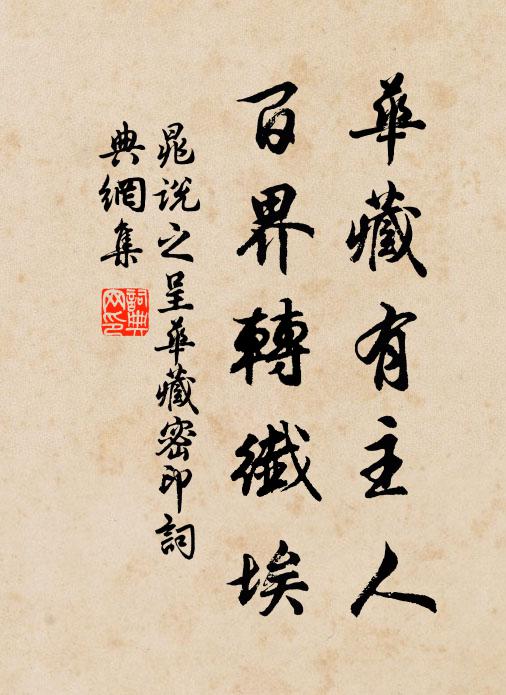 華藏有主人
百界轉纖埃
晁說之呈華藏密印詞
典網集
詞典
網印